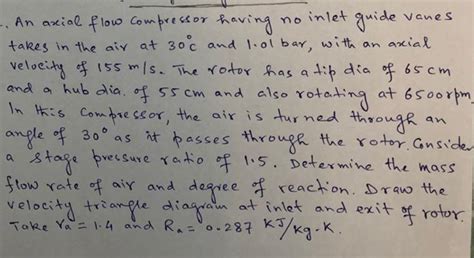 . An axial flow compressor having no inlet guide vanes
takes in the air at 30°c and 1.01 bar, with an axial
velocity of 155 m/s. The rotor has a tip dia of 65 cm
and a hub dia. of 55 cm and also rotating at 6500 rpm
In this compressor, the air is turned through an
angle of 30° as it passes through the rotor. Consider
a stage pressure ratio of 1.5. Determine the mass
flow rate of air and degree of reaction. Draw the
velocity triangle diagram at inlet and exit of rotor.
Take ra = 1.4 and Ra = 0.287 KJ/kg.K.